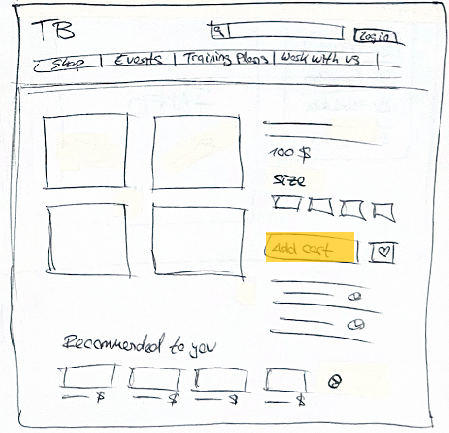 TB
Login
Shop | Events | Training Plans | Work with us |
100 $
Size
Add cart
Recommended to you
$ $ $ $